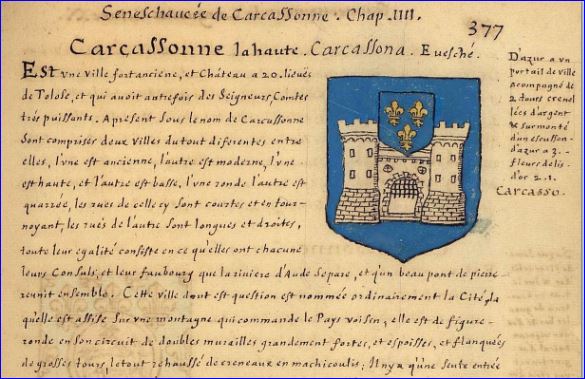 Seneschaucée de Carcassonne. Chap. IIII.
377
Carcassonne la haute. Carcassona. Euesché.
Est vne ville fort anciéne, et Château a 20. lieuës
de Tolose, et qui avoit autrefois des Seigneurs, Comtes
trés puissants. Apresent Sous le nom de Carcassonne
Sont comprises deux Villes du tout diferentes entre
elles, l'vne est ancienne, l'autre est moderne, l'vne
est haute, et l'autre est basse, l'vne ronde l'autre est
quarrée, les ruës de celle cy Sont courtes et en tour-
noyant, les ruës de l'autre Sont longues et droites,
toute leur egalité consiste en ce qu'elles ont chacune
leurs Consuls, et leur fauxbourg que la riviere d'Aude Separe, et qu'un beau pont de pierre
reunit ensemble. Cette ville dont est question est nommée ordinairement la Cité, la
qu'elle est assise Sur vne montagne qui commande le Pays voisin, elle est de figure
ronde en son circuit de doubles murailles grandement fortes, et espoisses, et flanquées
de grosses tours, le tout rehaussé de creneaux en machicoulis; Il n'y a qu'une seule entrée
D'azur a vn
portail de ville
acompagné de
2. tours crenel
lées d'argent
& surmonté
d'un escusson
d'azur a 3.
fleurs de lis
d'or 2. 1.
Carcasso.